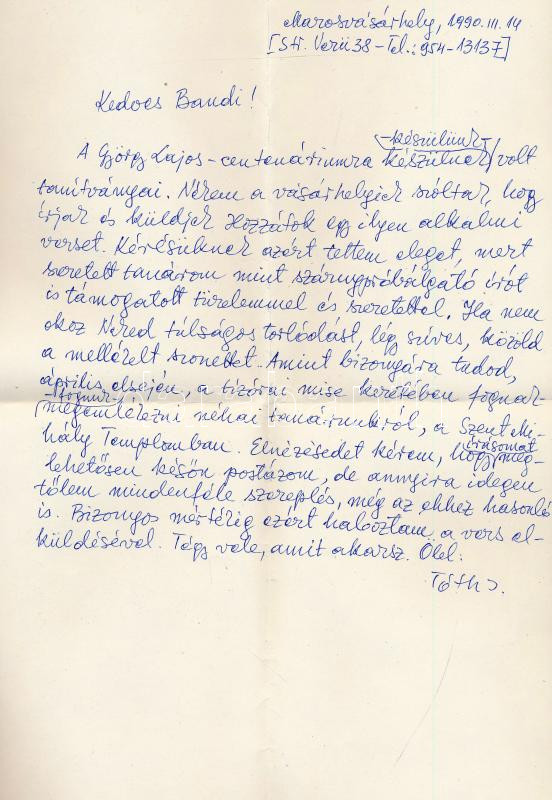 Marosvásárhely, 1990.III.14
[Str. Verii 38 - Tel.: 954-13137]
Kedves Bandi!
-készülünk-
A György Lajos-centenáriumra készülnek volt
tanítványai. Nekem a vásárhelyiek szóltak, hogy
írjak és küldjek Hozzátok egy ilyen alkalmi
verset. Kérésüknek azért tettem eleget, mert
szeretett tanárom mint szárnypróbálgató írót
is támogatott türelemmel és szeretettel. Ha nem
okoz Neked túlságos torlódást, légy szíves, közöld
a mellékelt szonettet. Amint bizonyára tudod,
április elsején, a tízórai mise keretében fognak
fogunk
megemlékezni néhai tanárunkról, a Szent Mi-
hály Templomban. Elnézésedet kérem, hogy meg-
írásomat
lehetősen későn postázom, de annyira idegen
tőlem mindenféle szereplés, még az ehhez hasonló
is. Bizonyos mértékig ezért haboztam a vers el-
küldésével. Tégy vele, amit akarsz. Ölel:
Tóth I.